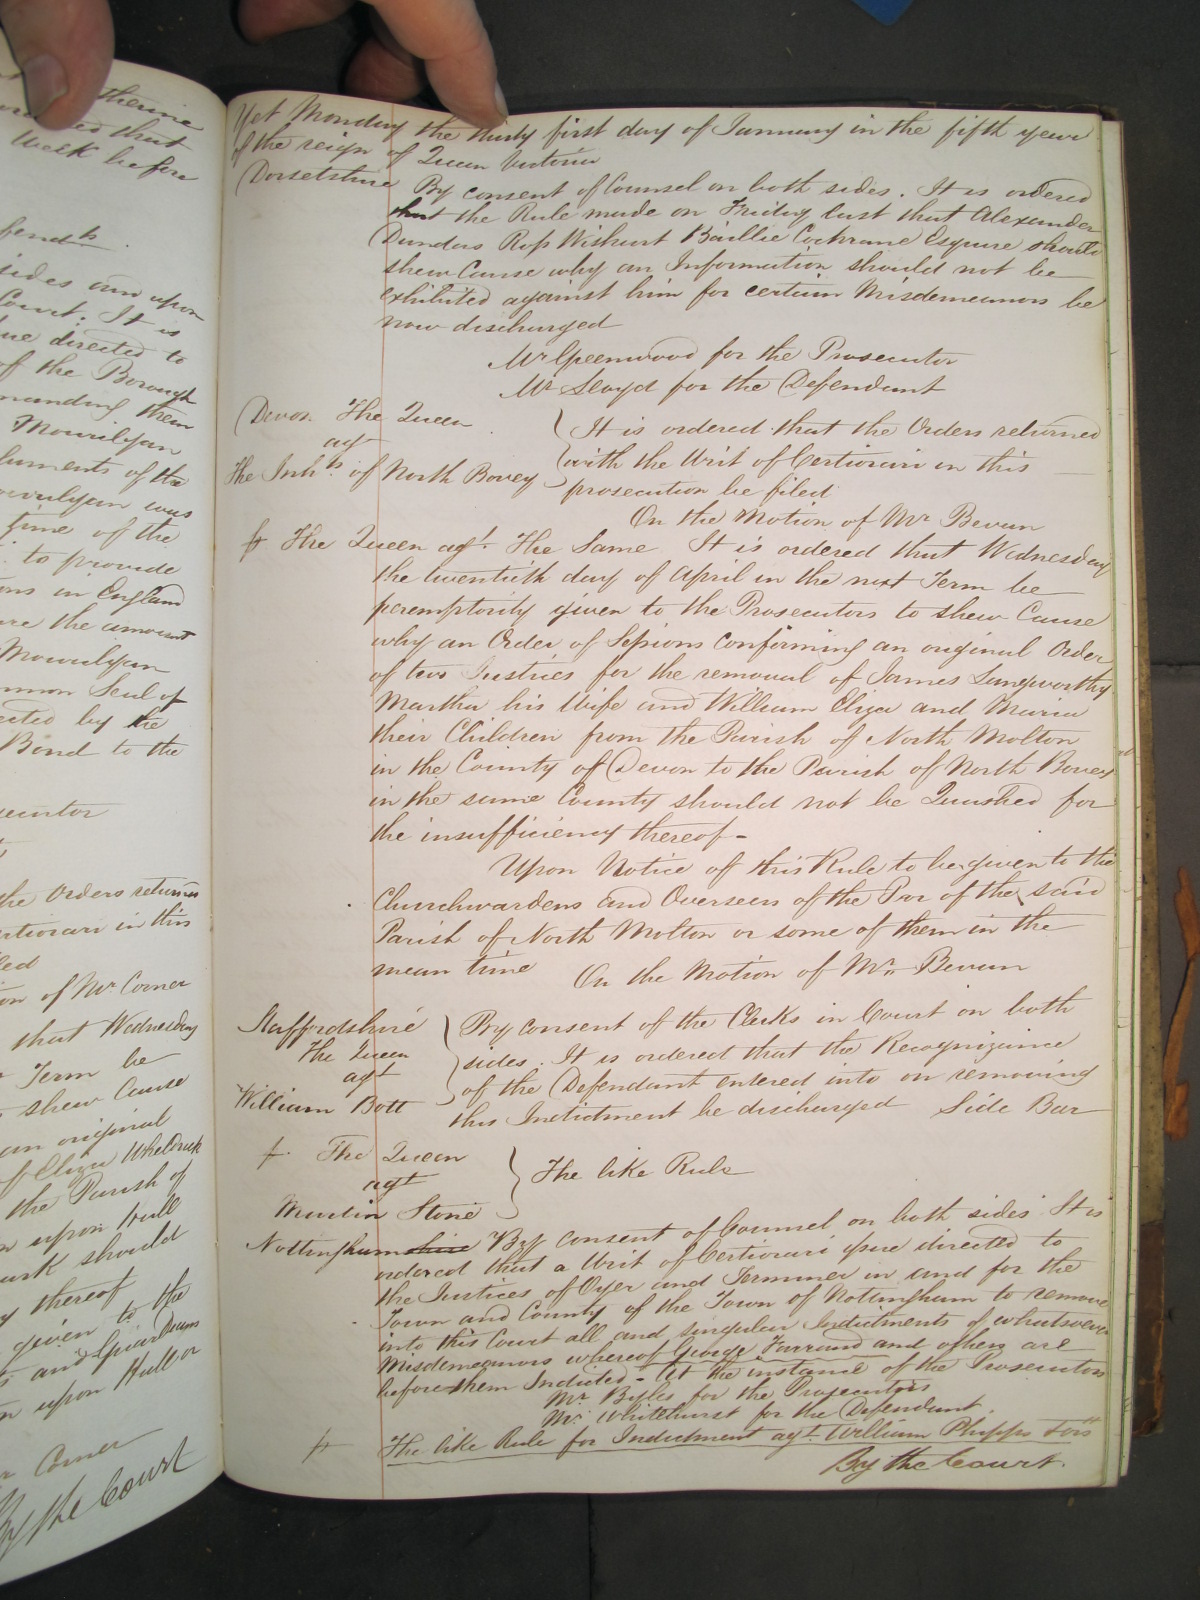 therine
that
Week before
fend.ts
sides and upon
Court. It is
directed to
of the Borough
manding them
Mourilyan
luments of the
ourilyan was
time of the
to provide
ons in England
are the amount
Mourilyan
mmon Seal of
ected by the
Bond to the
secutor
the Orders returned
ertiorari in this
led
on of Mr Corner
that Wednesday
Term be
shew Cause
an original
of Eliza
the Parish of
upon Hull
should
thereof
given to the
and Guardians
upon Hull or
Corner
By the Court
Yet Monday the thirty first day of January in the fifth year
of the reign of Queen Victoria
Dorsetshire By consent of Counsel on both sides. It is ordered
that the Rule made on Friday last that Alexander
Dundas Ross Wishart Baillie Cochrane Esquire should
shew Cause why an Information should not be
exhibited against him for certain Misdemeanors be
now discharged
Mr Greenwood for the Prosecutor
Mr Lloyd for the Defendant
Devon. The Queen
agt
The Inhts of North Bovey
It is ordered that the Orders returned
with the Writ of Certiorari in this
prosecution be filed
On the Motion of Mr Bevan
The Queen agt. The Same It is ordered that Wednesday
the twentieth day of April in the next Term be
peremptorily given to the Prosecutors to shew Cause
why an Order of Sessions confirming an original Order
of two Justices for the removal of James Langworthy
Martha his Wife and William Eliza and Maria
their Children from the Parish of North Molton
in the County of Devon to the Parish of North Bovey
in the same County should not be Quashed for
the insufficiency thereof-
Upon Notice of this Rule to be given to the
Churchwardens and Overseers of the Poor of the said
Parish of North Molton or some of them in the
mean time On the Motion of Mr Bevan
Staffordshire
The Queen
agt
William Bott
By consent of the Clerks in Court on both
sides. It is ordered that the Recognizance
of the Defendant entered into on removing
this Indictment be discharged Side Bar
The Queen
agt
Martin Stone
The like Rule
Nottinghamshire By consent of Counsel on both sides It is
ordered that a Writ of Certiorari issue directed to
the Justices of Oyer and Terminer in and for the
Town and County of the Town of Nottingham to remove
into this Court all and singular Indictments of whatsoever
Misdemeanors whereof George Farrand and others are
before them Indicted - At the instance of the Prosecutors
Mr. Byles for the Prosecutors
Mr. Whitehurst for the Defendant.
The like Rule for Indictment agt. William Phipps
By the Court.